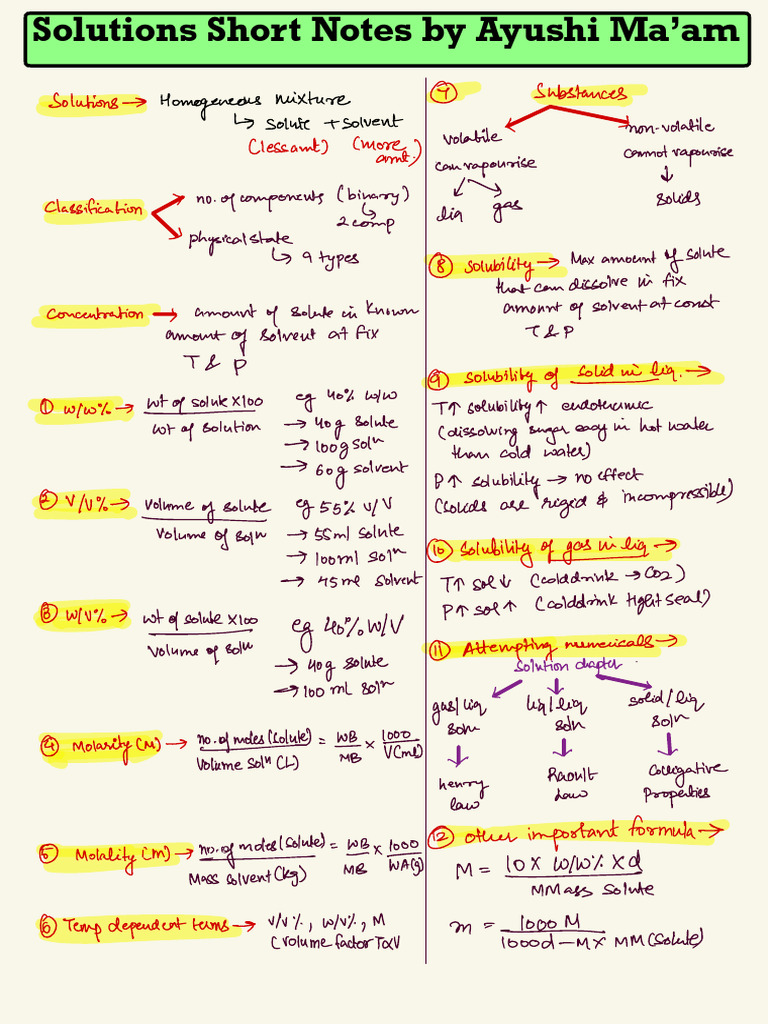 Solutions Short Notes by Ayushi Ma'am
Solutions → Homogeneous mixture
↳ Solute + Solvent
(less amt) (more amt.)
Classification
no. of components (binary)
↳ 2 comp
physical state
↳ 9 types
Concentration → amount of solute in known
amount of solvent at fix
T & P
① W/W% → wt of solute X100
wt of solution
eg 40% w/w
→ 40g solute
→ 100g solⁿ
→ 60g solvent
② V/V% → volume of solute
volume of solⁿ
eg 55% V/V
→ 55ml solute
→ 100ml solⁿ
→ 45ml solvent
③ W/V% → wt of solute X100
volume of solⁿ
eg 40% W/V
→ 40g solute
→ 100 mL solⁿ
④ Molarity (M) → no. of moles (solute) = WB × 1000
Volume solⁿ (L) MB V(mL)
⑤ Molality (m) → no. of moles (solute) = WB × 1000
Mass solvent (kg) MB WA(g)
⑥ Temp dependent terms → V/V%, W/V%, M
(Volume factor TαV
⑦ Substances
volatile
can vapourise
liq gas
non-volatile
cannot vapourise
↓
solids
⑧ Solubility → Max amount of solute
that can dissolve in fix
amount of solvent at const
T & P
⑨ Solubility of solid in liq. →
T↑ solubility ↑ endothermic
(dissolving sugar easy in hot water
than cold water)
P↑ solubility → no effect
(solids are rigid & incompressible)
⑩ Solubility of gas in liq →
T↑ sol ↓ (colddrink → CO2)
P↑ sol ↑ (colddrink tight seal)
⑪ Attempting numericals →
Solution chapter
gas/liq
solⁿ
henry
law
liq/liq
solⁿ
Raoult
Law
solid/liq
solⁿ
Colligative
Properties
⑫ other important formula →
M = 10 X W/W% X d
MMass solute
m = 1000 M
1000d – M X MM (solute)